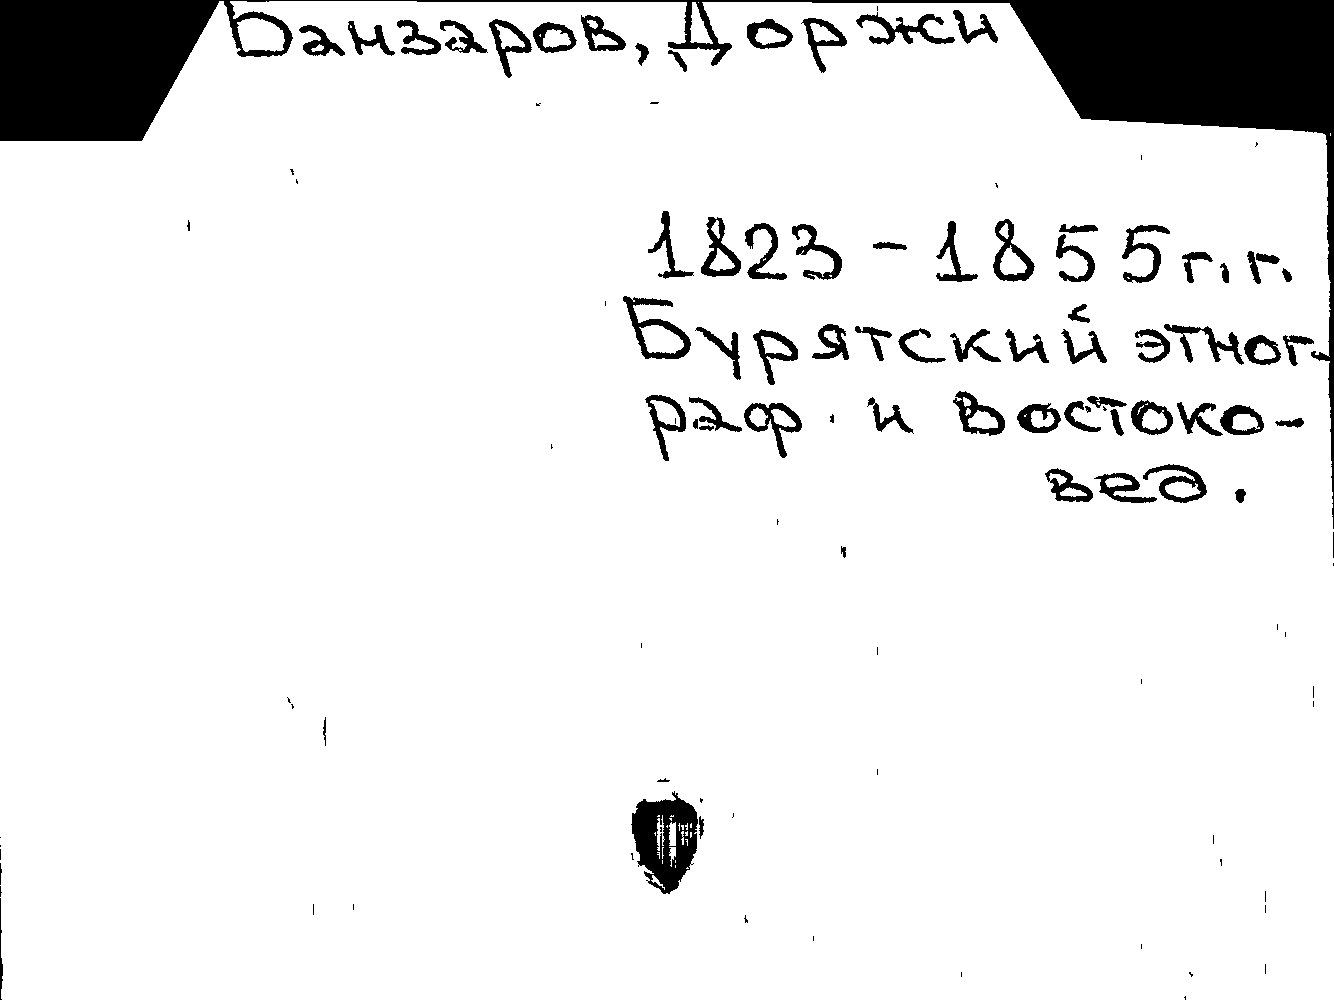 Банзаров, Доржи
1823 - 1855 г.г.
Бурятский этног-
раф и востоко-
вед.